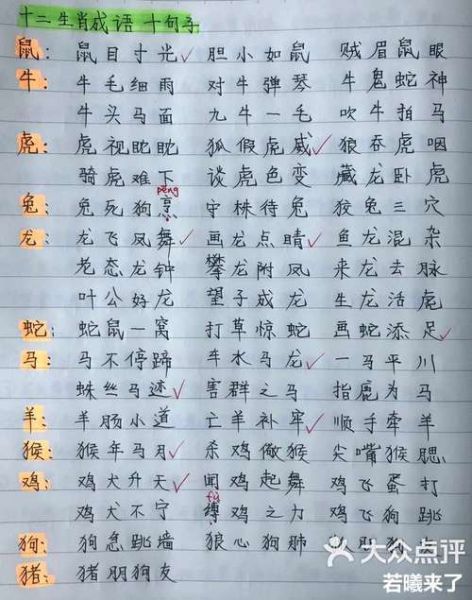 十二生肖成语 十句子
鼠: 鼠目寸光 胆小如鼠 贼眉鼠眼
牛: 牛毛细雨 对牛弹琴 牛鬼蛇神
牛头马面 九牛一毛 吹牛拍马
虎: 虎视眈眈 狐假虎威 狼吞虎咽
骑虎难下 谈虎色变 藏龙卧虎
pēng
兔: 兔死狗烹 守株待兔 狡兔三穴
龙: 龙飞凤舞 画龙点睛 鱼龙混杂
老态龙钟 攀龙附凤 来龙去脉
叶公好龙 望子成龙 生龙活虎
蛇: 蛇鼠一窝 打草惊蛇 画蛇添足
马: 马不停蹄 车水马龙 一马平川
蛛丝马迹 害群之马 指鹿为马
羊: 羊肠小道 亡羊补牢 顺手牵羊
猴: 猴年马月 杀鸡儆猴 尖嘴猴腮
鸡: 鸡犬升天 闻鸡起舞 鸡飞蛋打
fù
鸡犬不宁 缚鸡之力 鸡飞狗跳
狗: 狗急跳墙 狼心狗肺
猪: 猪朋狗友
大众点评
若曦来了